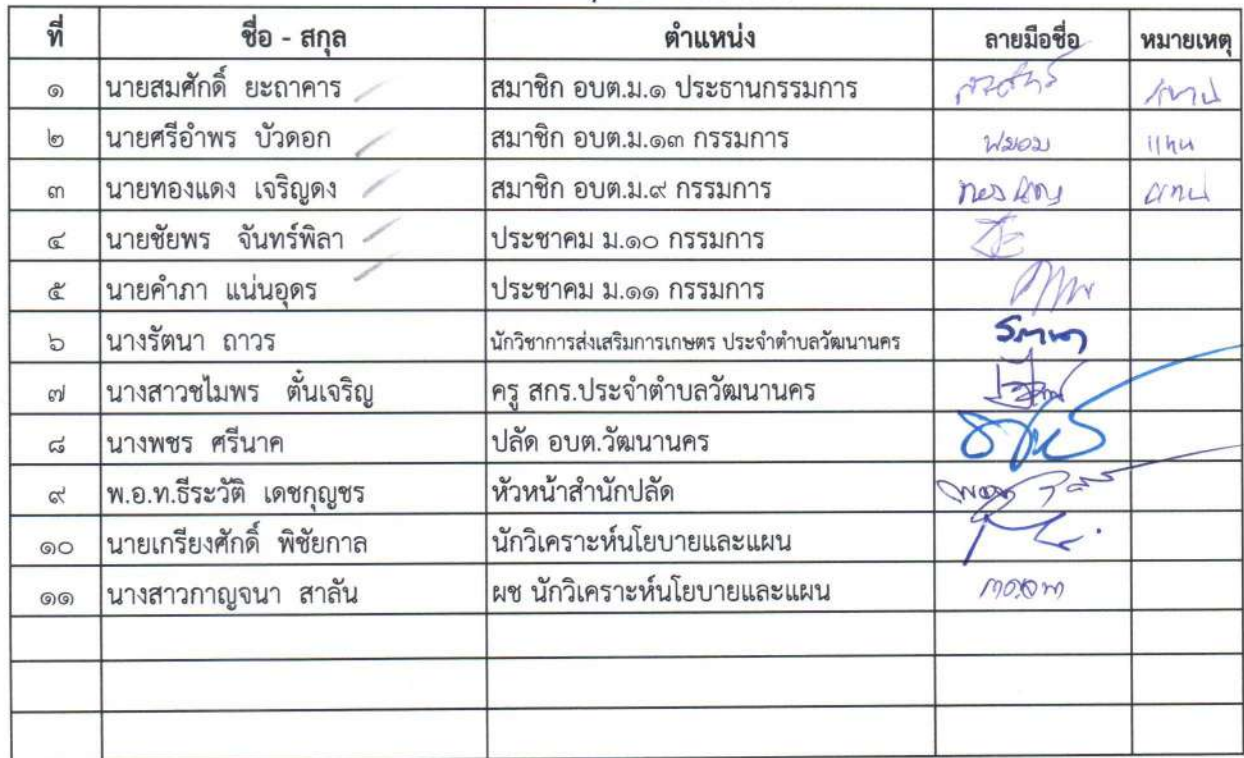 ที่ ชื่อ - สกุล ตำแหน่ง ลายมือชื่อ หมายเหตุ
๑ นายสมศักดิ์ ยะถาคาร สมาชิก อบต.ม.๑ ประธานกรรมการ
๒ นายศรีอำพร บัวดอก สมาชิก อบต.ม.๑๓ กรรมการ พยอม แทน
๓ นายทองแดง เจริญดง สมาชิก อบต.ม.๙ กรรมการ แทน
๔ นายชัยพร จันทร์พิลา ประชาคม ม.๑๐ กรรมการ
๕ นายคำภา แน่นอุดร ประชาคม ม.๑๑ กรรมการ
๖ นางรัตนา ถาวร นักวิชาการส่งเสริมการเกษตร ประจำตำบลวัฒนานคร รัตนา
๗ นางสาวชไมพร ตั๋นเจริญ ครู สกร.ประจำตำบลวัฒนานคร
๘ นางพชร ศรีนาค ปลัด อบต.วัฒนานคร
๙ พ.อ.ท.ธีระวัติ เดชกุญชร หัวหน้าสำนักปลัด
๑๐ นายเกรียงศักดิ์ พิชัยกาล นักวิเคราะห์นโยบายและแผน
๑๑ นางสาวกาญจนา สาลัน ผช นักวิเคราะห์นโยบายและแผน